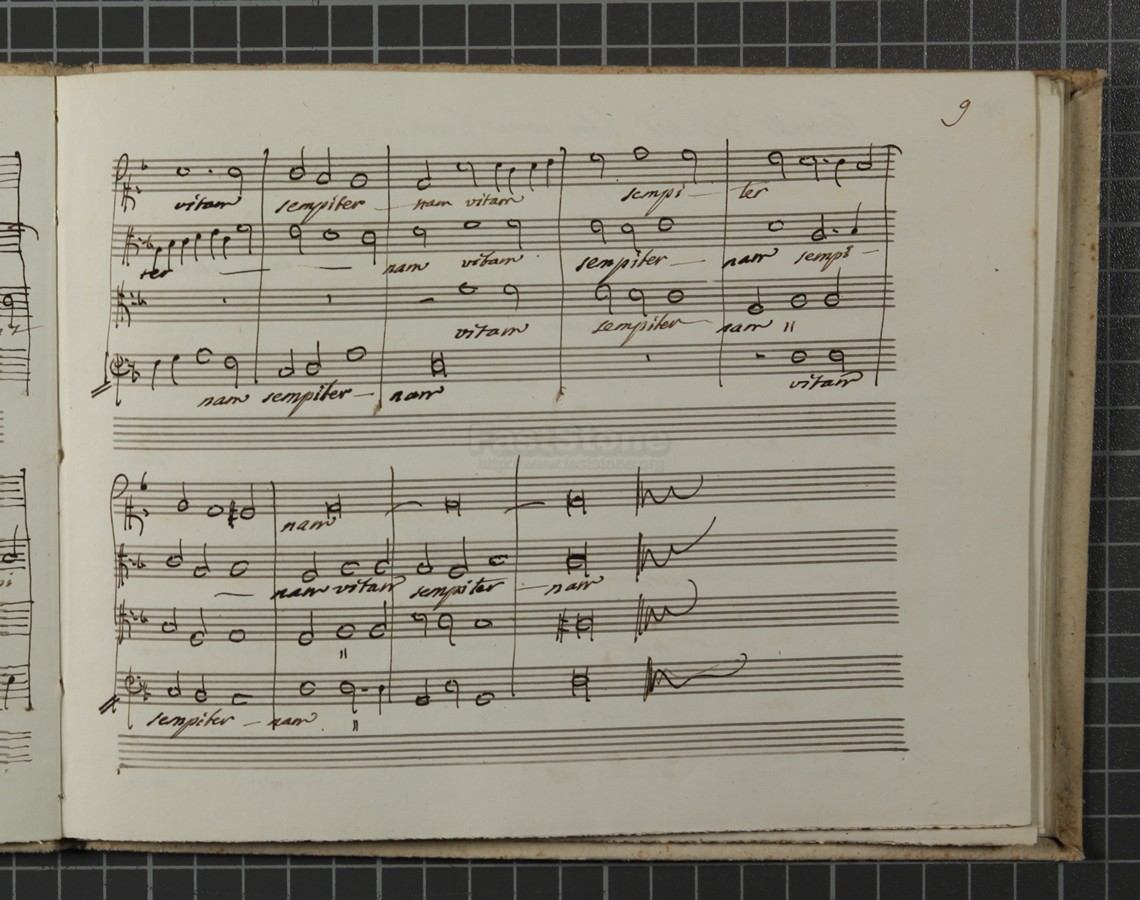 9
vitam sempiter — nam vitam sempi — ter
ter — — nam vitam sempiter — nam sempi —
vitam sempiter — nam "
nam sempiter — nam vitam
FastStone
nam
— nam vitam sempiter — nam
"
sempiter — nam "